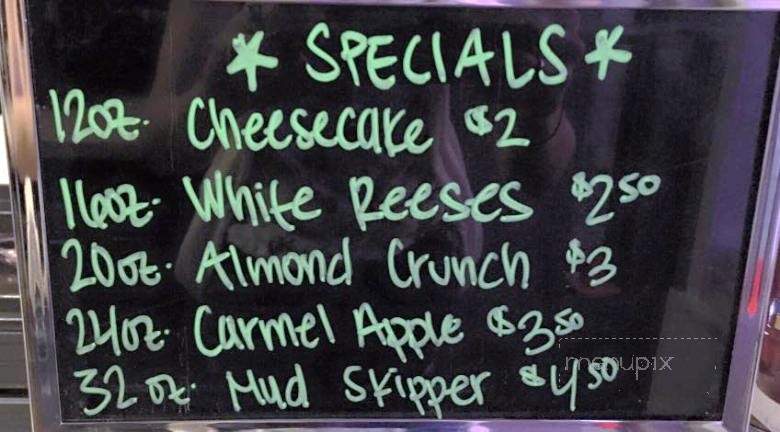 * SPECIALS *
12oz. Cheesecake $2
16oz. White Reeses $2.50
20oz. Almond Crunch $3
24oz. Carmel Apple $3.50
32oz. Mud Skipper $4.50
menupix